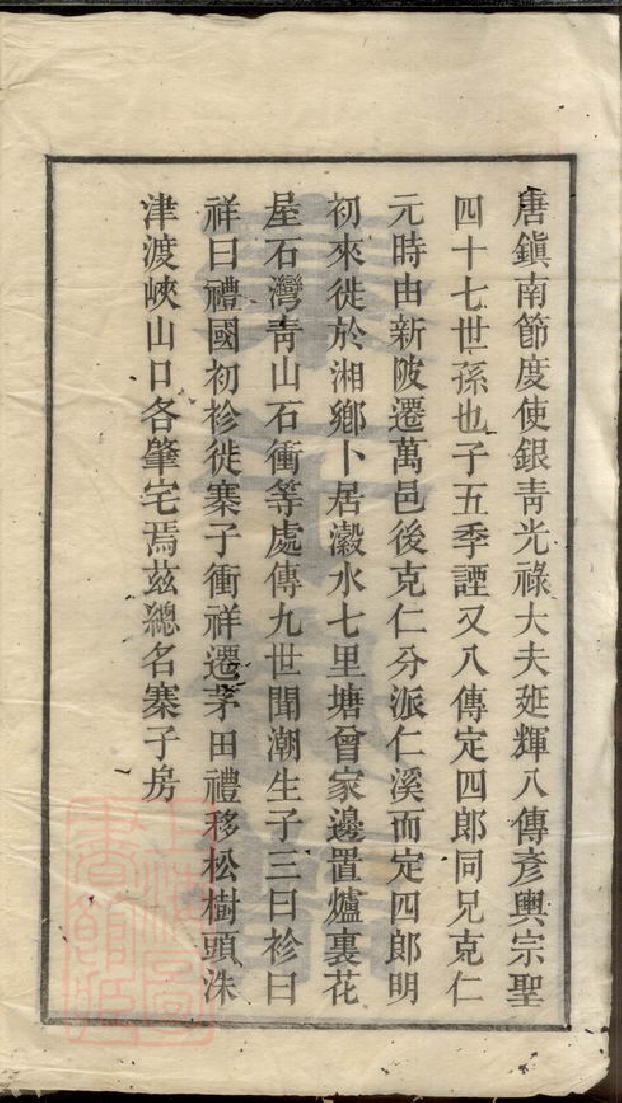 唐鎮南節度使銀青光祿大夫延輝八傳彥輿宗聖
四十七世孫也子五季諲又八傳定四郎同兄克仁
元時由新陂遷萬邑後克仁分派仁溪而定四郎明
初來徙於湘鄉卜居瀫水七里塘曾家邊置爐裏花
屋石灣青山石衝等處傳九世聞潮生子三曰袗曰
祥曰禮國初袗徙寨子衝祥遷茅田禮移松樹頭洙
津渡峽山口各肇宅焉茲總名寨子房